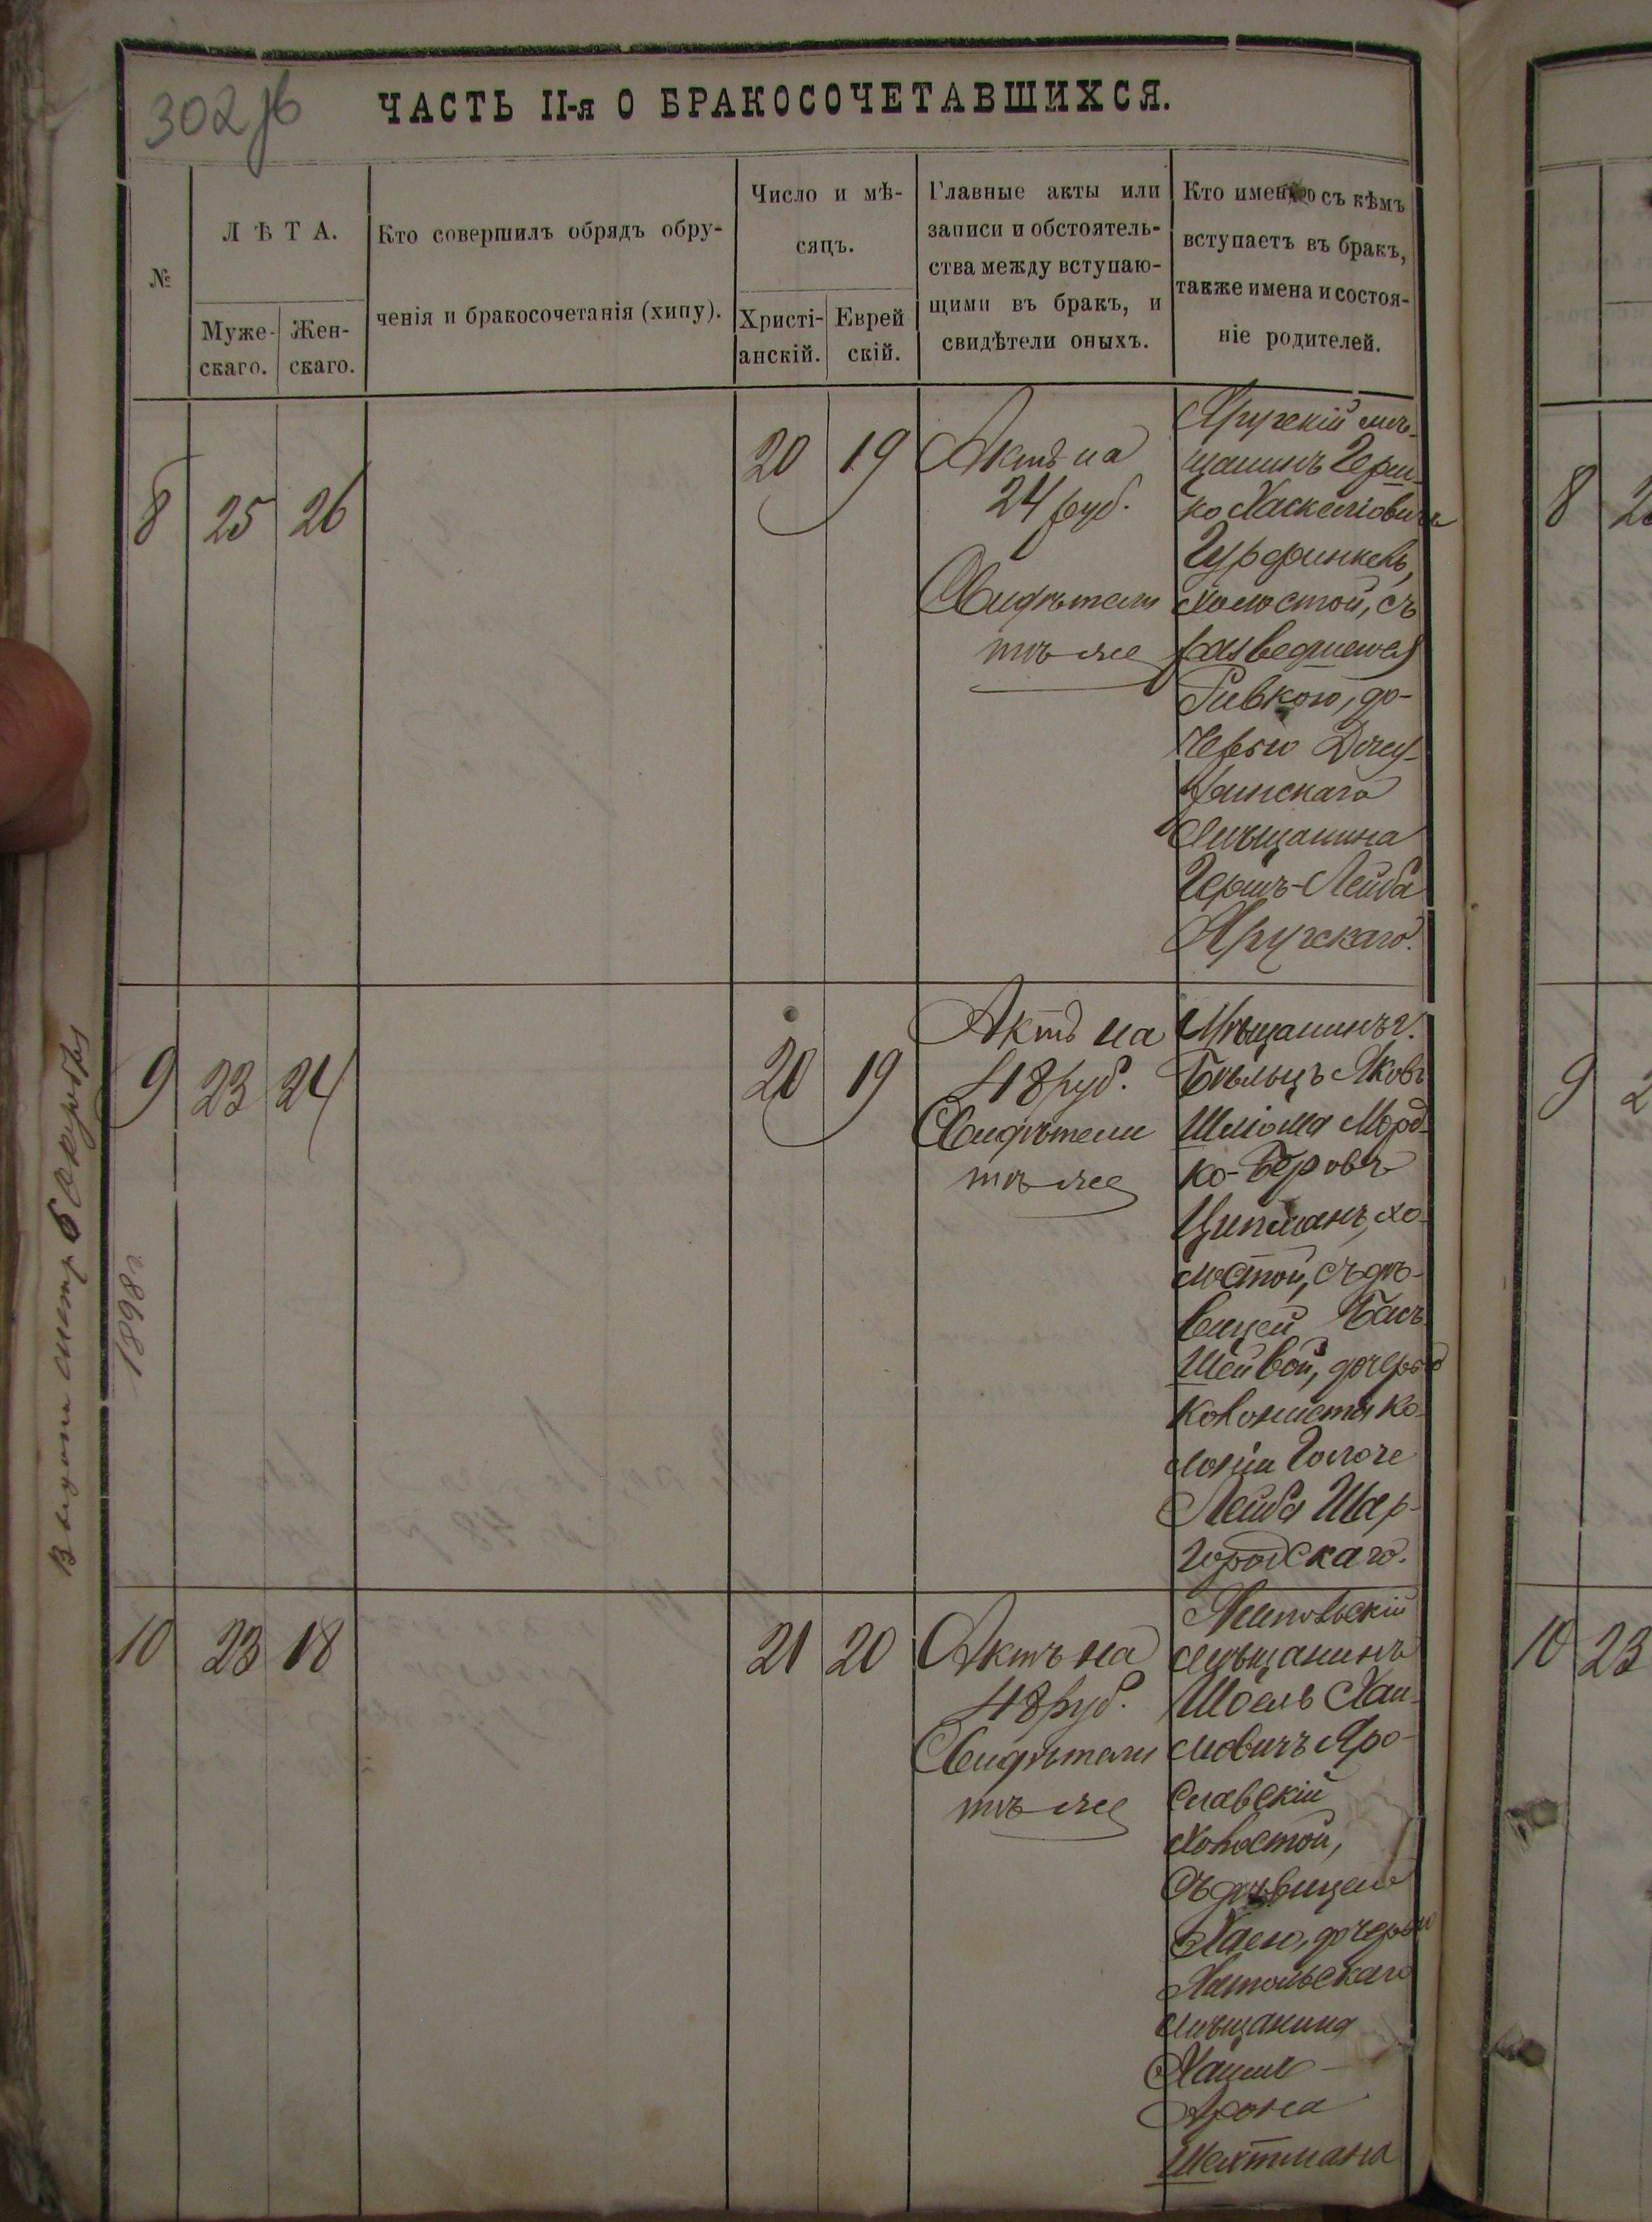 302 об
ЧАСТЬ II-я О БРАКОСОЧЕТАВШИХСЯ.
№
ЛѢТА.
Муже-
скаго.
Жен-
скаго.
Кто совершилъ обрядъ обру-
ченія и бракосочетанія (хипу).
Число и мѣ-
сяцъ.
Христі-
анскій.
Еврей
скій.
Главные акты или
записи и обстоятель-
ства между вступаю-
щими въ бракъ, и
свидѣтели оныхъ.
Кто именно съ кѣмъ
вступаетъ въ бракъ,
также имена и состоя-
ніе родителей.
8
25
26
20
19
Актъ на
24 руб.
Свидѣтели
тѣ-же
мѣ-
щанинъ Герш-
ко Хаскеліовичъ
Гурфинкель,
холостой, съ
разведшеюся
Ривкою, до-
черью
мѣщанина
Гершъ-Лейба
9
23
24
20
19
Актъ на
48 руб.
Свидѣтели
тѣ-же
Мѣщанинъ г.
Бѣльцъ Яковъ
Шліома Морд-
ко-Беровъ
Ципманъ, хо-
лостой, съ дѣ-
вицей Бась
Шейвой, дочерью
колониста ко-
лоніи
Лейба Шар-
городскаго.
10
23
18
21
20
Актъ на
48 руб.
Свидѣтели
тѣ-же
Хотинскій
мѣщанинъ
Шоель Хаи-
мовичъ Яро-
славскій
холостой,
съ дѣвицею
Хаею, дочерью
мѣщанина
Хаима
Арона
Шехтмана
1898 г.
8
9
10
23